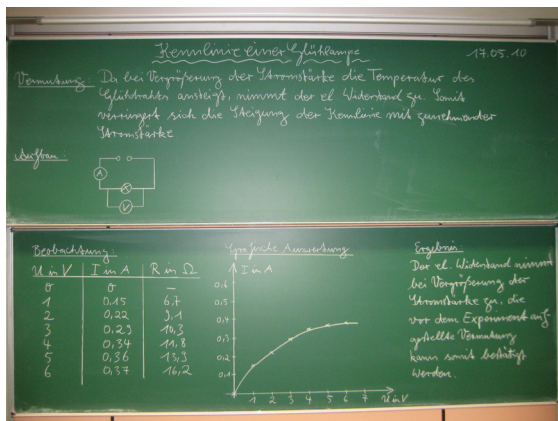 Kennlinie einer Glühlampe
17.05.10
Vermutung: Da bei Vergrößerung der Stromstärke die Temperatur des
Glühdrahts ansteigt, nimmt der el. Widerstand zu. Somit
verringert sich die Steigung der Kennlinie mit zunehmender
Stromstärke
Aufbau:
A
V
Beobachtung:
U in V | I in A | R in Ω
0 0 –
1 0,15 6,7
2 0,22 9,1
3 0,29 10,3
4 0,34 11,8
5 0,36 13,9
6 0,37 16,2
Grafische Auswertung
I in A
0,6
0,5
0,4
0,3
0,2
0,1
1 2 3 4 5 6 7 U in V
Ergebnis:
Der el. Widerstand nimmt
bei Vergrößerung der
Stromstärke zu, die
vor dem Experiment auf-
gestellte Vermutung
kann somit bestätigt
werden.